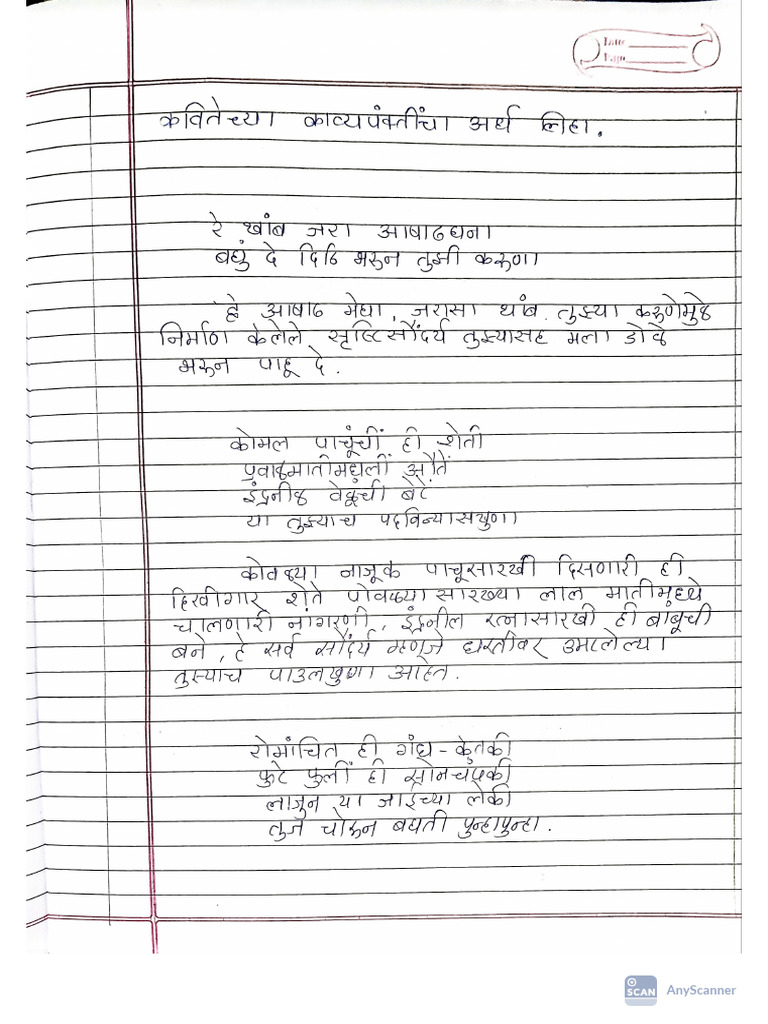 Date
Page
कवितेच्या काव्यपंक्तींचा अर्थ लिहा.
रे खांब जरा आषाढघना
बघुं दे दिठि भरुन तुझी करुणा
हे आषाढ मेघा, जरासा थांब. तुझ्या करुणेमुळे
निर्माण केलेले सृष्टिसौंदर्य तुझ्यासह मला डोळे
भरुन पाहू दे.
कोमल पाचूंचीं ही शेती
प्रवाळमातीमधुलीं औतें
इंद्रनीळ वेळूची बेटें
या तुझ्याच पदविन्यासखुणा
कोवळ्या नाजूक पाचूसारखी दिसणारी ही
हिरवीगार शेते पोवळ्यासारख्या लाल मातीमध्ये
चालणारी नांगरणी, इंद्रनील रत्नासारखी ही बांबूची
बने, हे सर्व सौंदर्य म्हणजे धरतीवर उमटलेल्या
तुझ्याच पाउलखुणा आहेत.
रोमांचित ही गंध-केतकी
फुटे फुलीं ही सोनचंपकी
लाजुन या जाईच्या लेकी
तुज चोरून बघती पुन्हापुन्हा.
SCAN AnyScanner